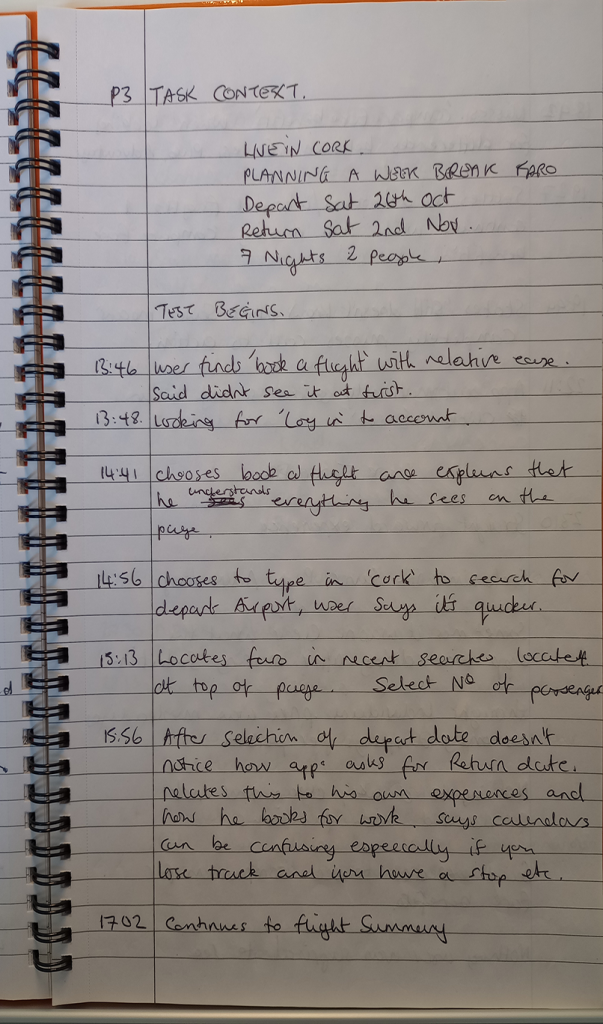 P3 TASK CONTEXT.
LIVE IN CORK.
PLANNING A WEEK BREAK FARO
Depart Sat 26th Oct
Return Sat 2nd Nov.
7 Nights 2 people,
TEST BEGINS.
13:46 user finds 'book a flight' with relative ease.
Said didn't see it at first.
13:48. Looking for 'Log in' to account.
14:41 chooses book a flight and explains that
he understands everything he sees on the
page.
14:56 chooses to type in 'cork' to search for
depart Airport, user says it's quicker.
15:13 Locates faro in recent searches located
at top of page. Select No of passenger
15:56 After selection of depart date doesn't
notice how app asks for Return date.
relates this to his own experiences and
how he books for work. says calendars
can be confusing especially if you
lose track and you have a stop etc.
1702 Continues to flight Summary
d